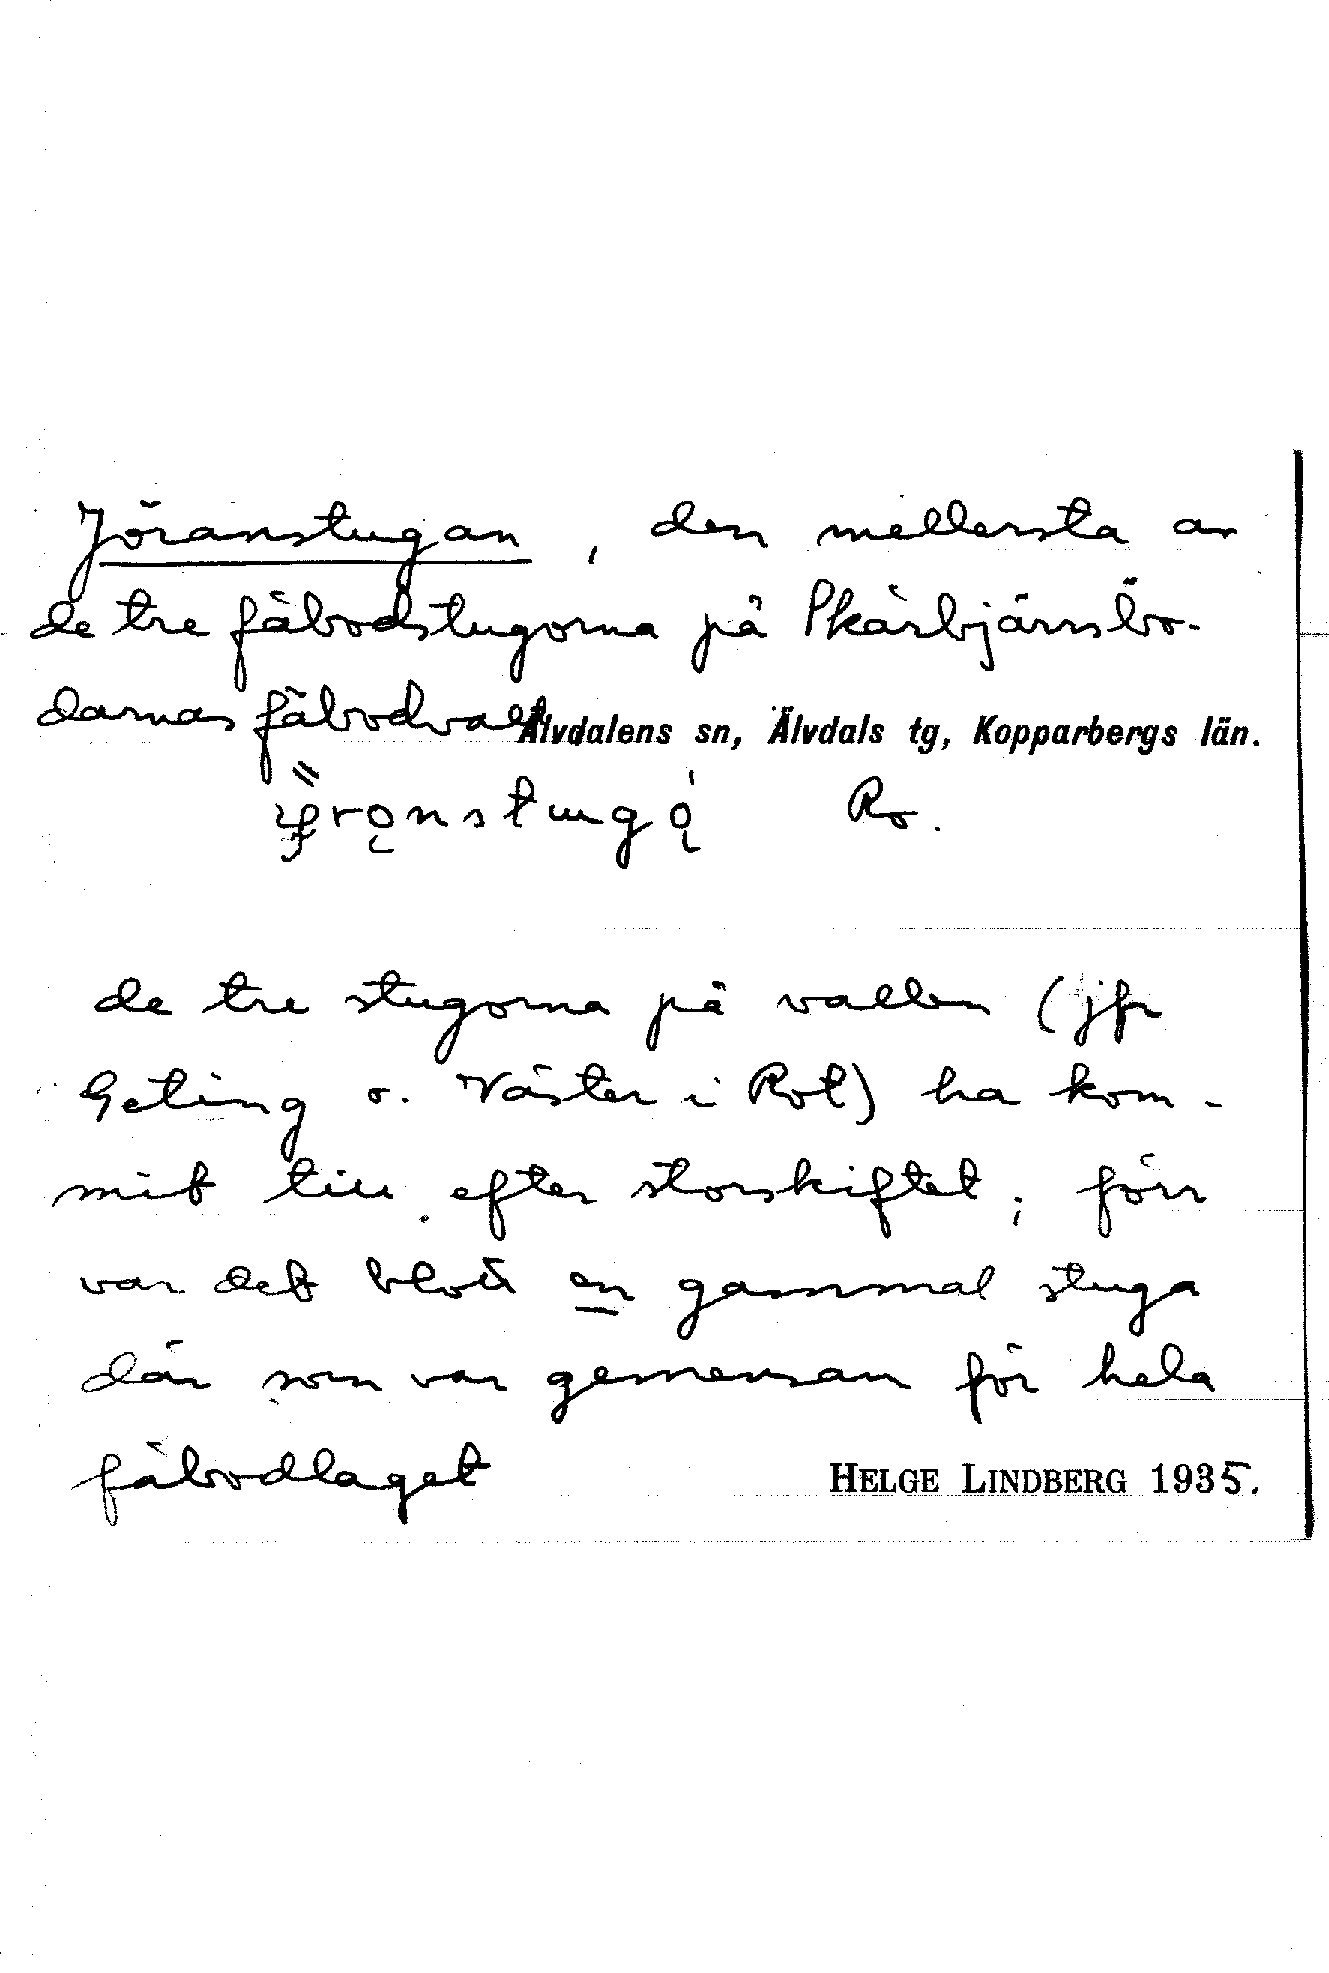 Jöranstugan, den mellersta av
de tre fäbodstugorna på Skärbjärnsbo-
darnas fäbodvall
Älvdalens sn, Älvdals tg, Kopparbergs län.
Ro.
de tre stugorna på vallen (jfr
Geting o. Väster i Rot) ha kom-
mit till efter storskiftet; förr
var det blott en gammal stuga
där som var gemensam för hela
fäbodlaget
HELGE LINDBERG 1935.